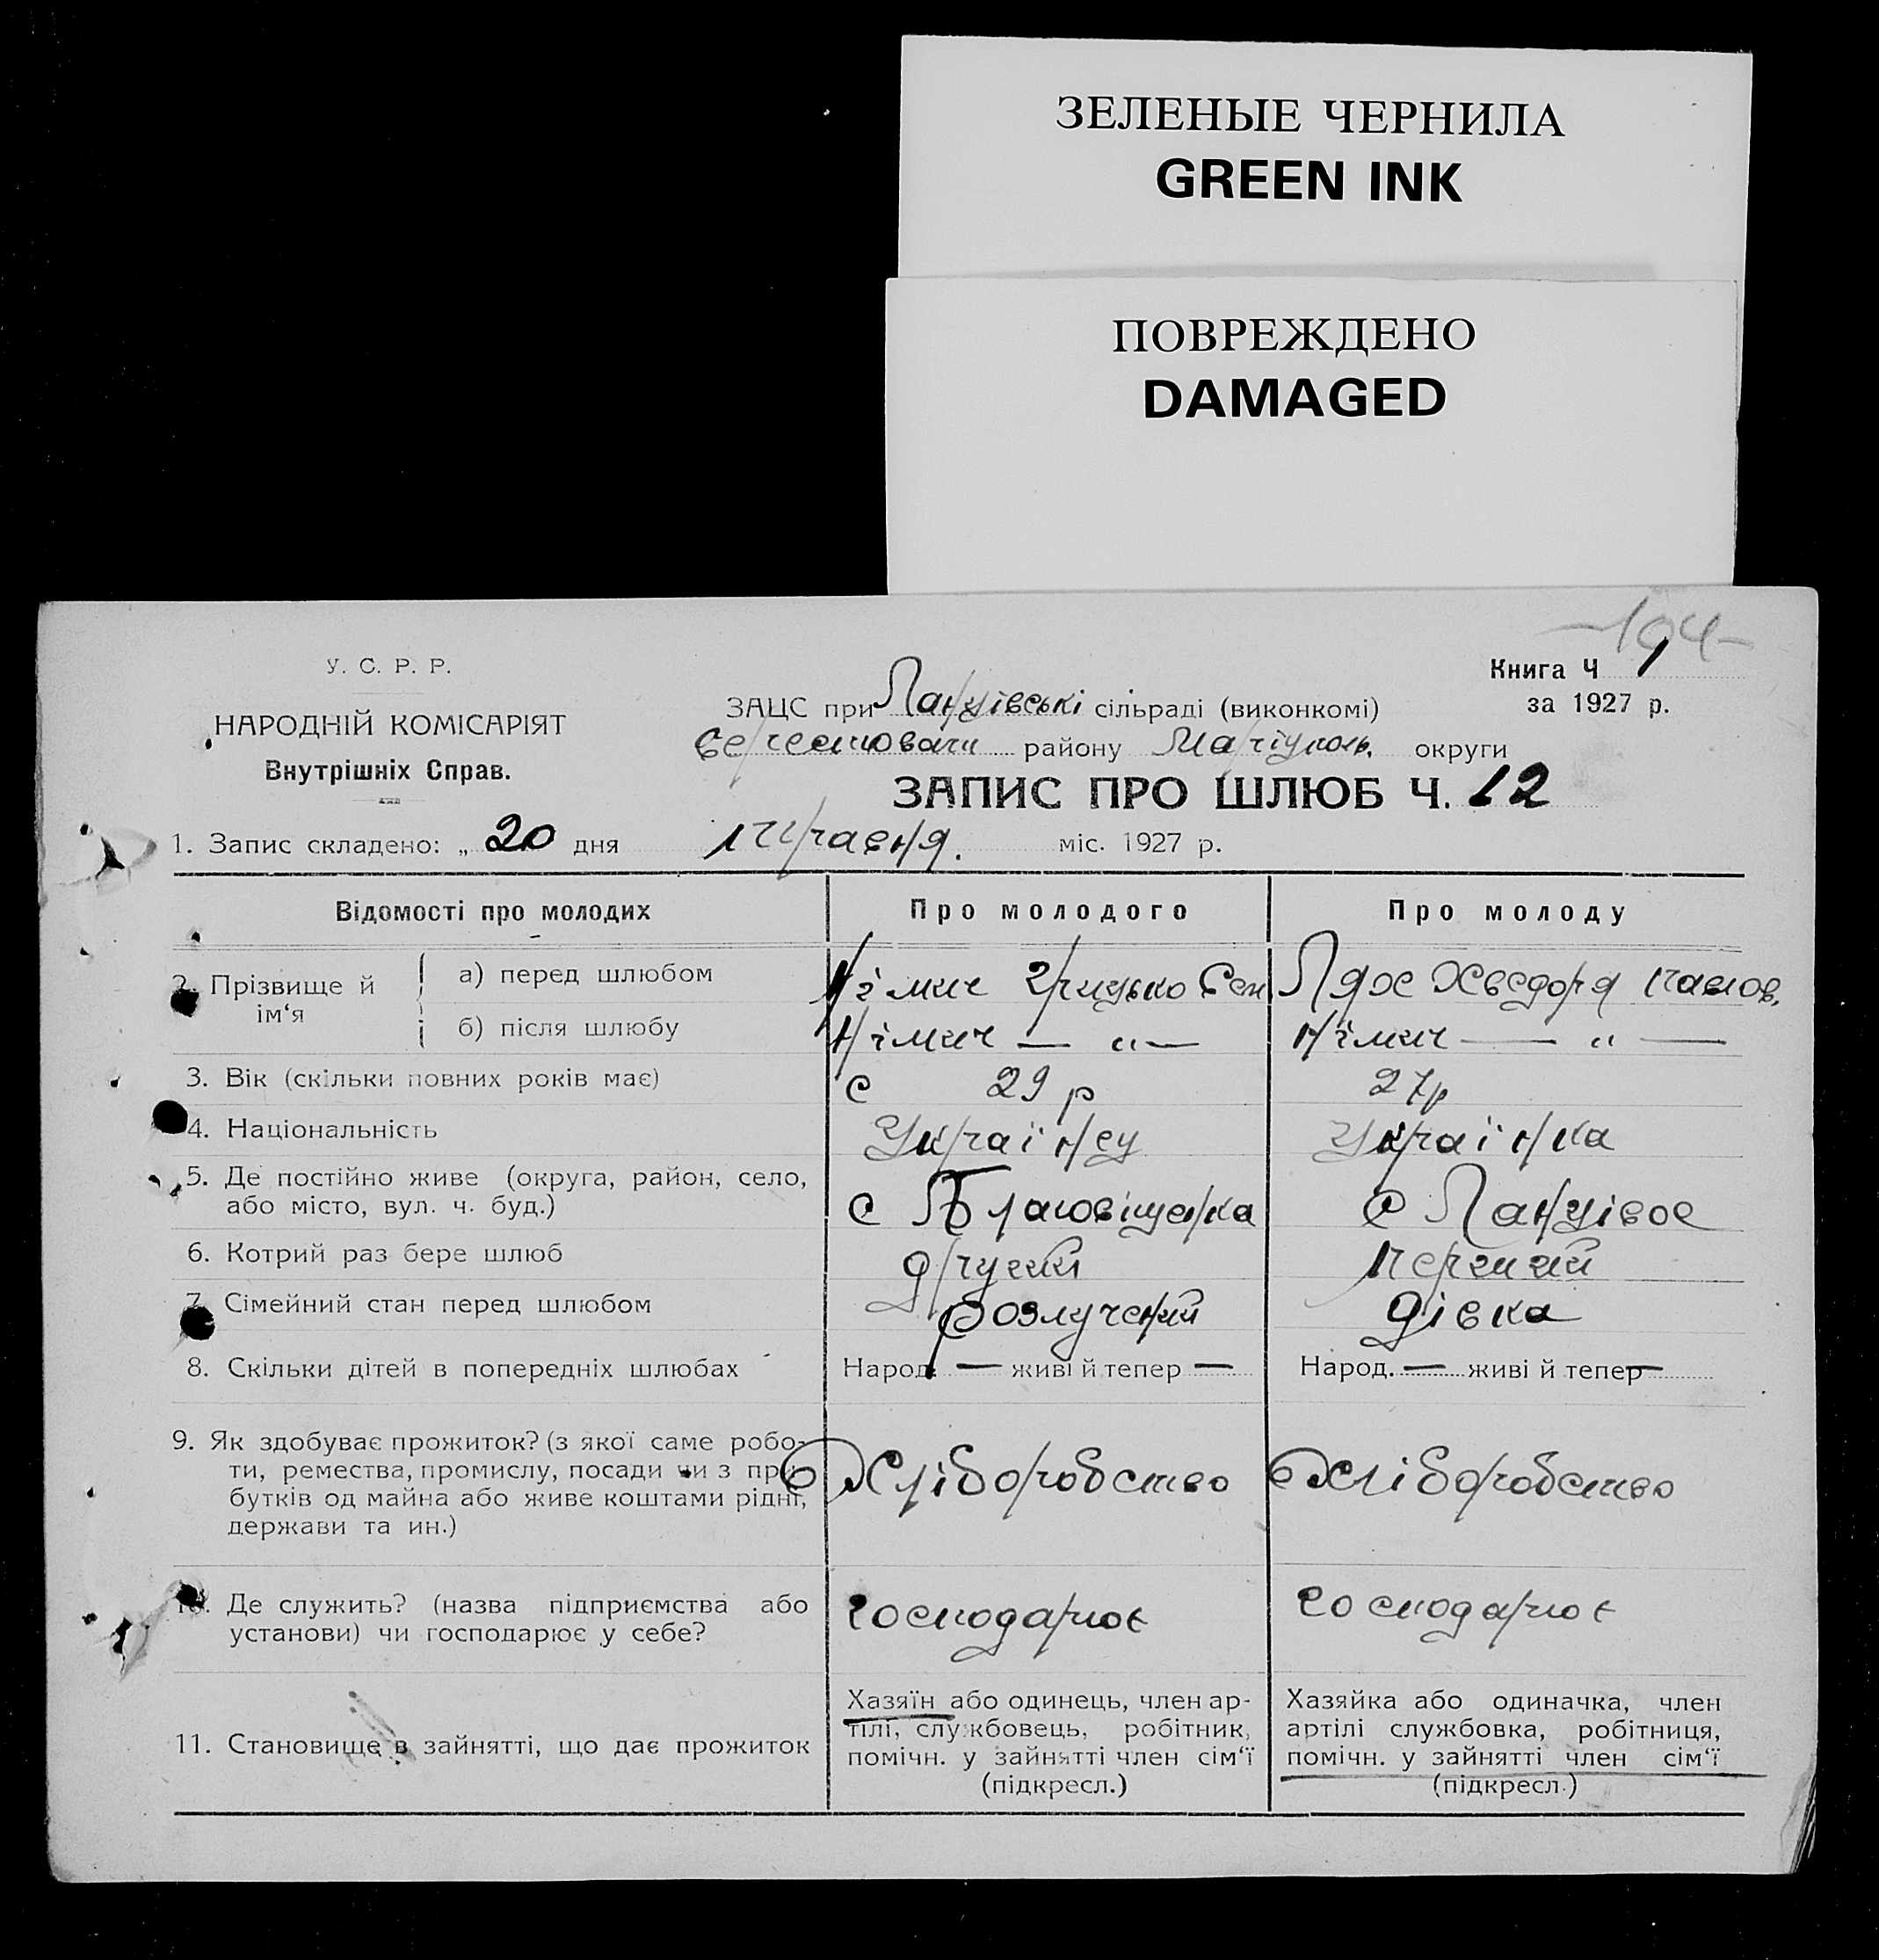 ЗЕЛЕНЫЕ ЧЕРНИЛА
GREEN INK
ПОВРЕЖДЕНО
DAMAGED
-194-
У. С. Р. Р.
НАРОДНІЙ КОМІСАРІЯТ
Внутрішніх Справ.
Книга Ч 1
за 1927 р.
ЗАЦС при Ланцівські сільраді (виконкомі)
району Маріуполь. округи
ЗАПИС ПРО ШЛЮБ Ч. 12
1. Запис складено: „ 20 дня травня. міс. 1927 р.
Відомості про молодих
Про молодого
Про молоду
2. Прізвище й ім‘я
а) перед шлюбом
Німич Грицько Сем
Хведоря павлов.
б) після шлюбу
Німич — „ —
Німич — „ —
3. Вік (скільки повних років має)
29 р
27р
4. Національність
Українец
Українка
5. Де постійно живе (округа, район, село,
або місто, вул. ч. буд.)
с Благовіщенка
с Ланцівое
6. Котрий раз бере шлюб
другий
перший
7. Сімейний стан перед шлюбом
розлучений
дівка
8. Скільки дітей в попередніх шлюбах
Народ. — живі й тепер —
Народ. — живі й тепер —
9. Як здобуває прожиток? (з якої саме робо-
ти, ремества, промислу, посади чи з при-
бутків од майна або живе коштами рідні,
держави та ин.)
Хліборобство
Хліборобство
10. Де служить? (назва підприємства або
установи) чи господарює у себе?
господарює
господарює
11. Становище в зайнятті, що дає прожиток
Хазяїн або одинець, член ар-
тілі, службовець, робітник,
помічн. у зайнятті член сім‘ї
(підкресл.)
Хазяйка або одиначка, член
артілі службовка, робітниця,
помічн. у зайнятті член сім‘ї
(підкресл.)